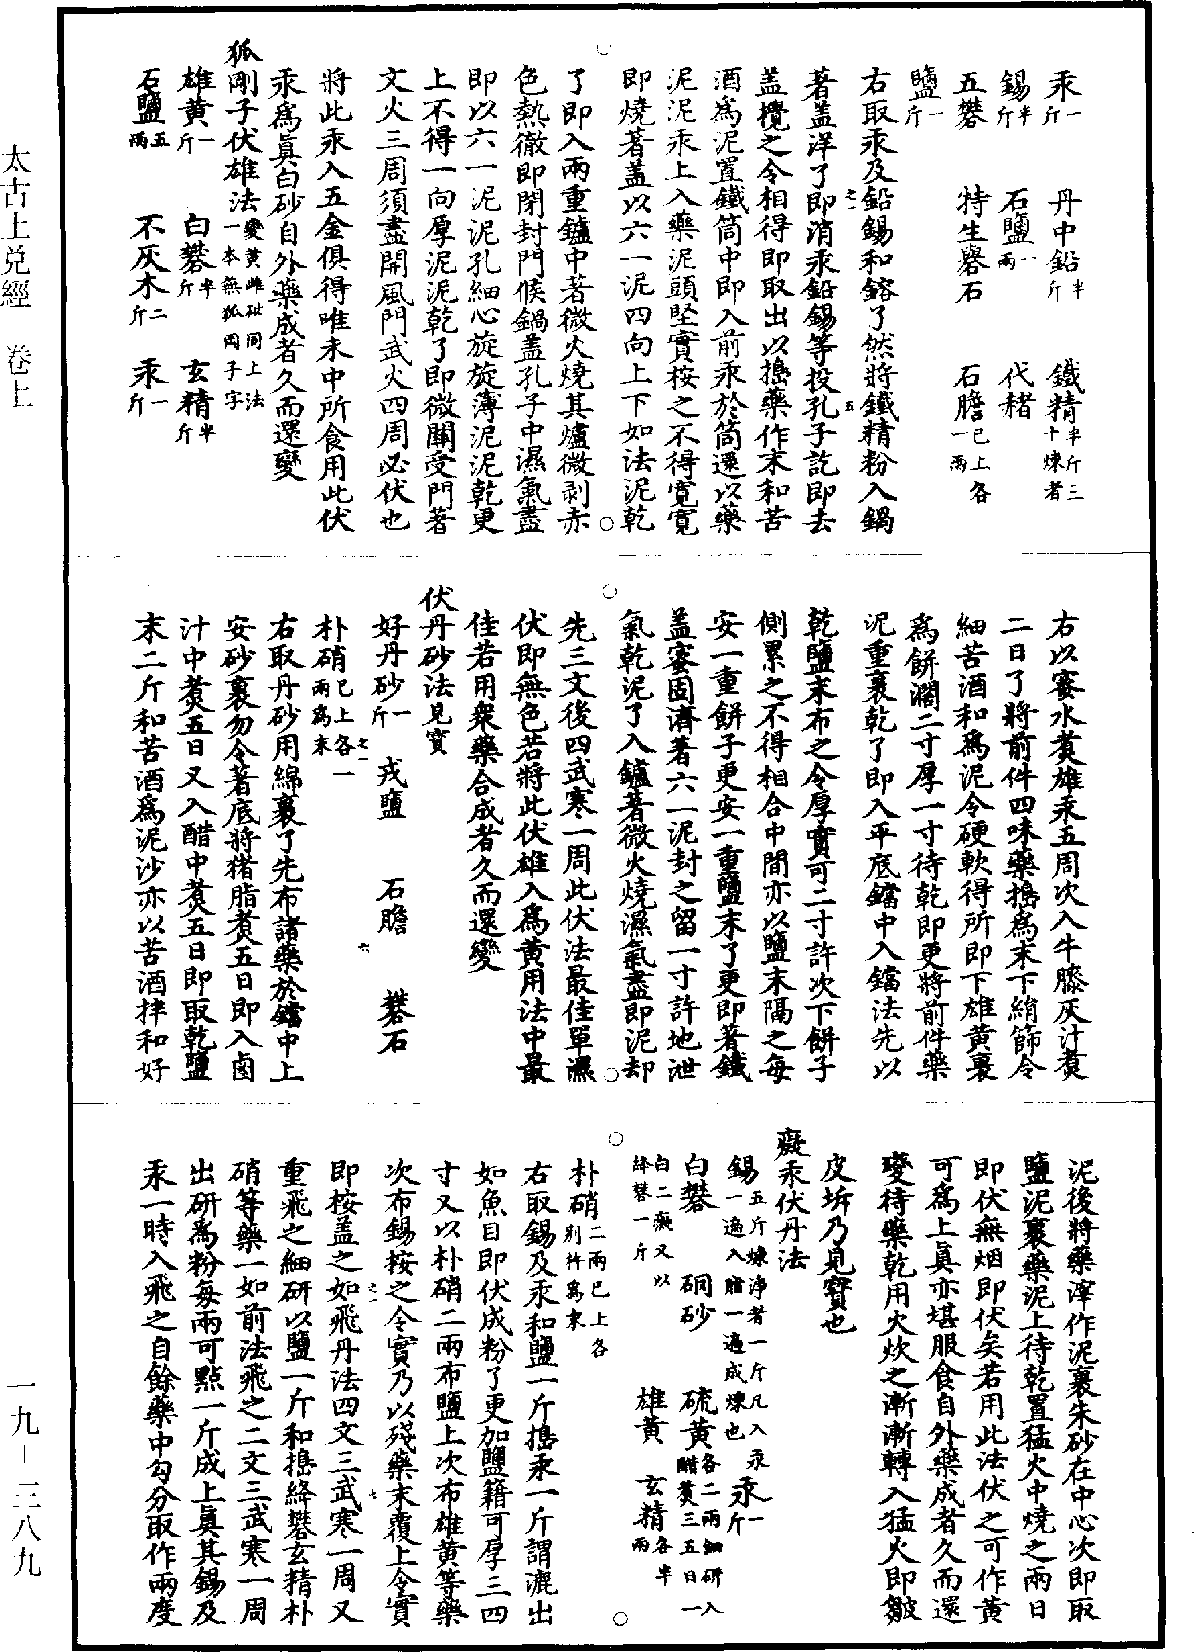 太古上兌經　卷上
一九－三八九
汞一斤　丹中鉛半斤　鐵精半斤三十煉者
錫半斤　石鹽一兩　代赭
五礬　特生礜石　石膽已上各一兩
鹽一斤
右取汞及鉛錫和鎔了然將鐵精粉入鍋
著蓋洋了即消汞鉛錫等投孔子訖即去
蓋攪之令相得即取出以搗藥作末和苦
酒爲泥置鐵筒中即入前汞於筒還以藥
泥泥汞上入藥泥頭堅實桉之不得寬寬
即燒著蓋以六一泥四向上下如法泥乾
了即入兩重鑪中著微火燒其爐微剥赤
色熱徹即閉封門候鍋蓋孔子中濕氣盡
即以六一泥泥孔細心旋旋薄泥泥乾更
上不得一向厚泥泥乾了即微關受門著
文火三周須盡開風門武火四周必伏也
將此汞入五金俱得唯未中所食用此伏
汞爲眞白砂自外藥成者久而還變
狐剛子伏雄法變黃雌砒同上法一本無狐岡子字
雄黃一斤　白礬半斤　玄精半斤
石鹽五兩　不灰木二斤　汞一斤
右以蜜水煑雄汞五周次入牛膝灰汁煑
二日了將前件四味藥搗爲末下絹篩令
細苦酒和爲泥令硬軟得所即下雄黃裹
爲餅濶二寸厚一寸待乾即更將前件藥
泥重裹乾了即入平底鐺中入鐺法先以
乾鹽末布之令厚實可二寸許次下餅子
側累之不得相合中間亦以鹽末隔之每
安一重餅子更安一重鹽末了更即著鐵
蓋蜜固濟著六一泥封之留一寸許地泄
氣乾泥了入鑪著微火燒濕氣盡即泥却
先三文後四武寒一周此伏法最佳單濕
伏即無色若將此伏雄入爲黃用法中最
佳若用衆藥合成者久而還變
伏丹砂法見寳
好丹砂一斤　戎鹽　石膽　礬石
朴硝已上各一兩爲末
右取丹砂用綿裹了先布諸藥於鐺中上
安砂裹勿令著底將猪脂煑五日即入鹵
汁中煑五日又入醋中煑五日即取乾鹽
末二斤和苦酒爲泥沙亦以苦酒拌和好
泥後將藥滓作泥裹朱砂在中心次即取
鹽泥裹藥泥上待乾置猛火中燒之兩日
即伏無烟即伏矣若用此法伏之可作黃
可爲上眞亦堪服食自外藥成者久而還
變待藥乾用火炊之漸漸轉入猛火即皺
皮坼乃見寳也
癡汞伏丹法
錫五斤煉淨者一斤凡入汞一遍入醋一遍成煉也　汞一斤
白礬　硇砂　硫黃各二兩細研入醋煑三五日一
白二癡又以絳礬一斤　雄黃　玄精各半兩
朴硝二兩已上各別杵爲末
右取錫及汞和鹽一斤搗汞一斤謂漉出
如魚目即伏成粉了更加鹽籍可厚三四
寸又以朴硝二兩布鹽上次布雄黃等藥
次布錫桉之令實乃以殘藥末覆上令實
即桉蓋之如飛丹法四文三武寒一周又
重飛之細研以鹽一斤和搗絳礬玄精朴
硝等藥一如前法飛之二文三武寒一周
出研爲粉每兩可點一斤成上眞其錫及
汞一時入飛之自餘藥中勾分取作兩度